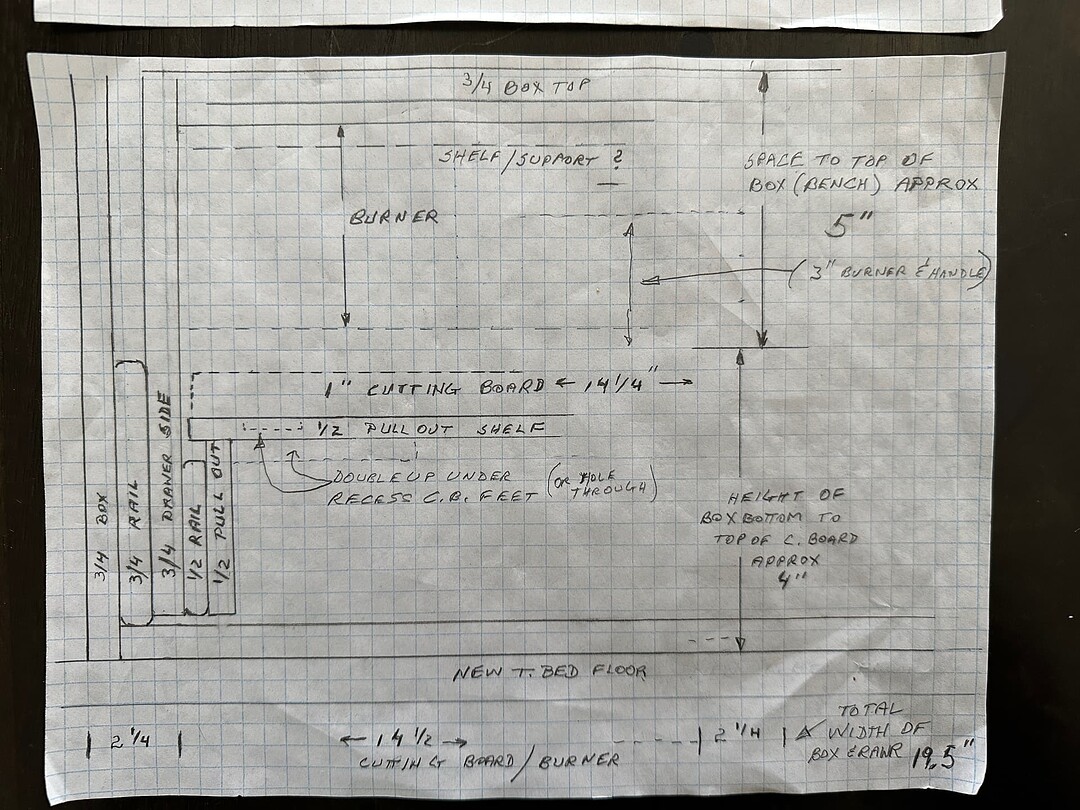 3/4 BOX TOP
SHELF/SUPPORT ?
SPACE TO TOP OF
BOX (BENCH) APPROX
5"
BURNER
(3" BURNER & HANDLE)
1" CUTTING BOARD 14 1/4"
1/2 PULL OUT SHELF
DOUBLE UP UNDER
RECESS C.B. FEET
(OR HOLE
THROUGH)
3/4 BOX
3/4 RAIL
3/4 DRAWER SIDE
1/2 RAIL
1/2 PULL OUT
HEIGHT OF
BOX BOTTOM TO
TOP OF C. BOARD
APPROX
4"
NEW T. BED FLOOR
2 1/4
14 1/2
CUTTING BOARD/BURNER
2 1/4
TOTAL
WIDTH OF
BOX & RAWR 19.5"